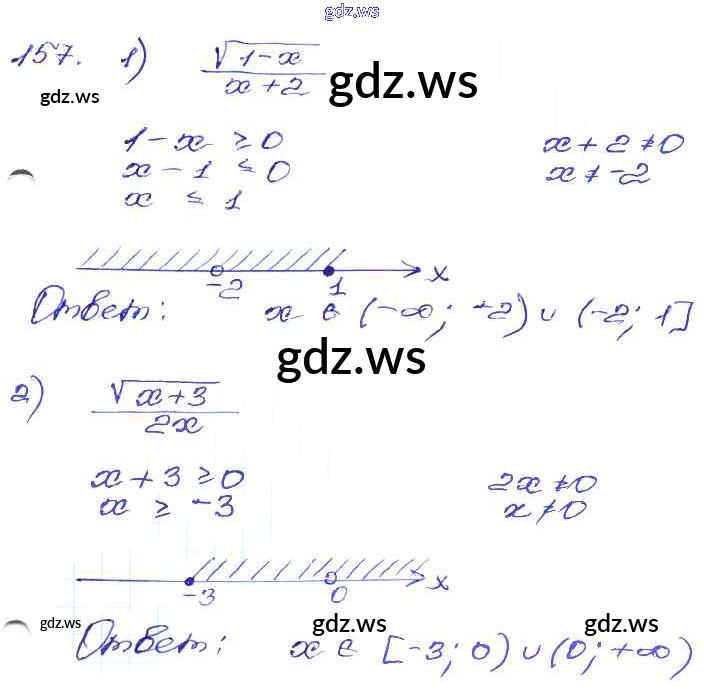 gdz.ws
157. 1) √(1-x) / (x+2)
gdz.ws
gdz.ws
1-x ≥ 0    x+2≠0
x-1 ≤ 0    x≠-2
x ≤ 1
-2    1    x
Ответ: x ∈ (-∞; -2) ∪ (-2; 1]
gdz.ws
2) √(x+3) / 2x
x+3 ≥ 0    2x≠0
x ≥ -3    x≠0
-3    0    x
gdz.ws    gdz.ws    gdz.ws
Ответ: x ∈ [-3; 0) ∪ (0; +∞)